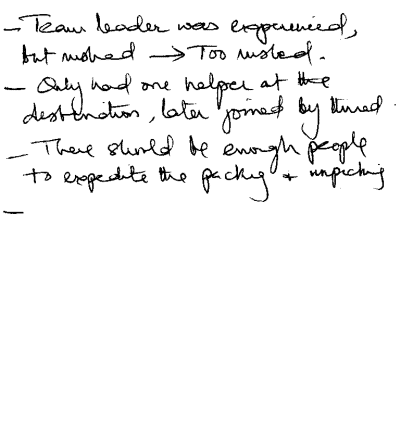 - Team leader was experienced,
but rushed → Too rushed.
- Only had one helper at the
destination, later joined by third
- There should be enough people
to expedite the packing + unpacking
-